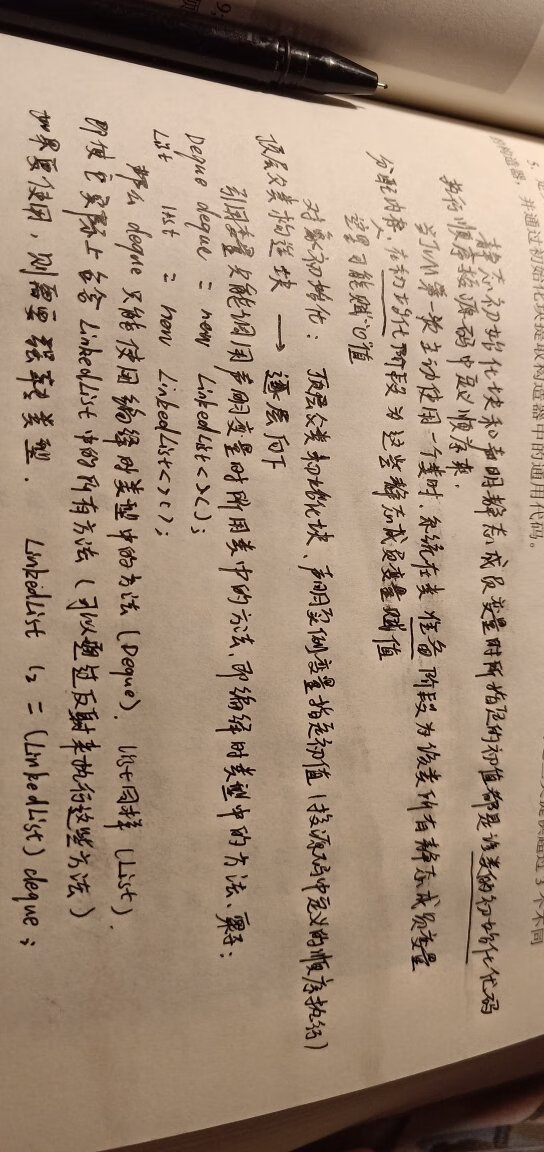 5. 是
的构造器，并通过初始化块提取构造器中的通用代码。
静态初始化块和声明静态成员变量时所指定的初值都是该类的初始化代码
执行顺序按源码中定义顺序来.
当JVM第一次主动使用一个类时，系统在类准备阶段为该类所有静态成员变量
分配内存，在初始化阶段为这些静态成员变量赋值
这里可能赋0值
对象初始化：顶层父类初始化块、声明实例变量指定初值（按源码中定义的顺序执行）
顶层父类构造块 → 逐层向下
引用变量只能调用声明变量时所用类中的方法，即编译时类型中的方法、栗子：
Deque deque = new LinkedList<>();
List list = new LinkedList<>();
那么 deque 只能使用编译时类型中的方法 (Deque). list同样 (List).
即使它实际上包含 LinkedList 中的所有方法（可以通过反射来执行这些方法）
如果要使用，则需要强转类型. LinkedList l2 = (LinkedList) deque;